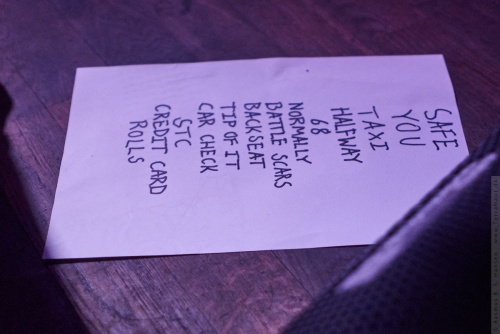 SAFE
YOU
TAXI
HALFWAY
68
NORMALLY
BATTLE SCARS
BACKSEAT
TIP OF IT
CAR CHECK
STC
CREDIT CARD
ROLLS